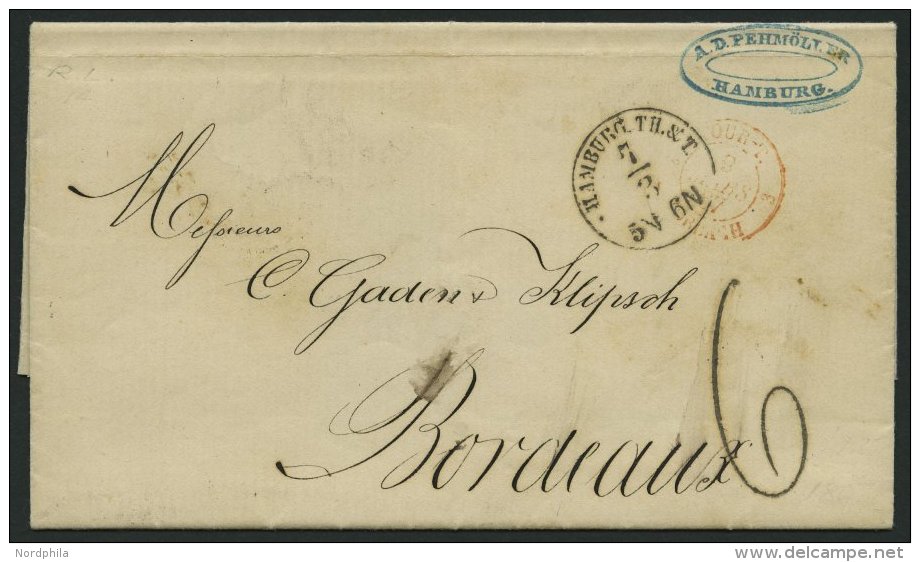 A.D. PEHMÖLLER
HAMBURG.
R 1.
HAMBURG. TH. & T.
5/3
5N 6N
9
3
Messieurs
C. Gaden & Klipsch
Bordeaux
6
Nordphila
www.delcampe.net